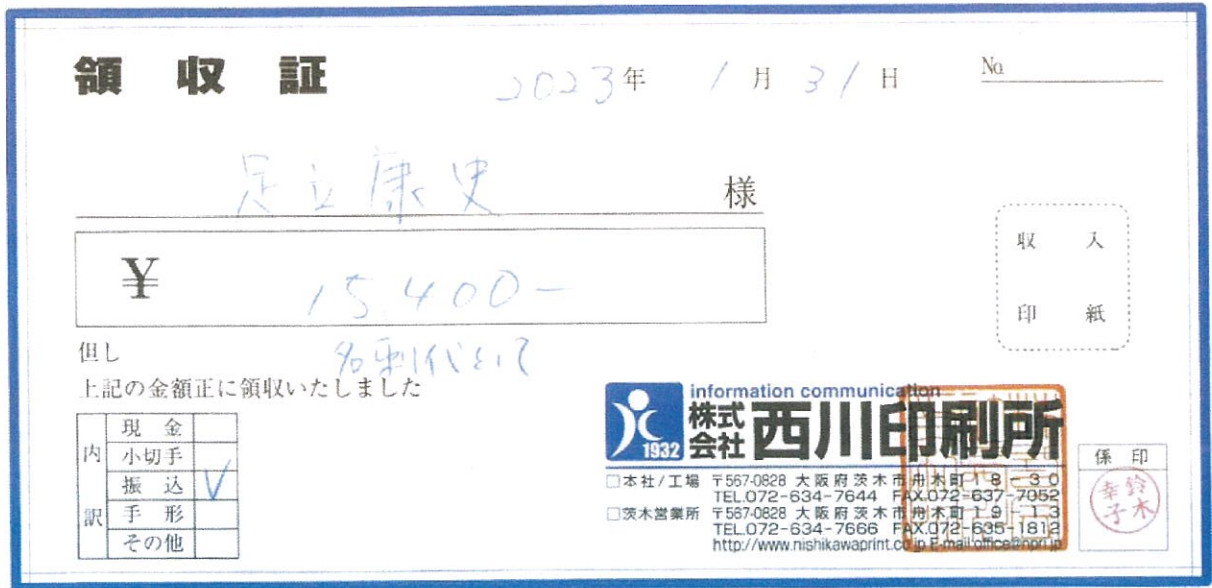 領収証 2023年 1月 31日 No.
足立康史 様
¥ 15,400-
但し 名刺代として
上記の金額正に領収いたしました
収入
印紙
内訳
現金
小切手
振込 ✓
手形
その他
information communication
1932 株式会社 西川印刷所
□本社/工場 〒567-0828 大阪府茨木市舟木町18-30
TEL.072-634-7644 FAX.072-637-7052
□茨木営業所 〒567-0828 大阪府茨木市舟木町19-13
TEL.072-634-7666 FAX.072-635-1812
http://www.nishikawaprint.co.jp E-mail:office@npri.jp
係印
鈴木
幸子